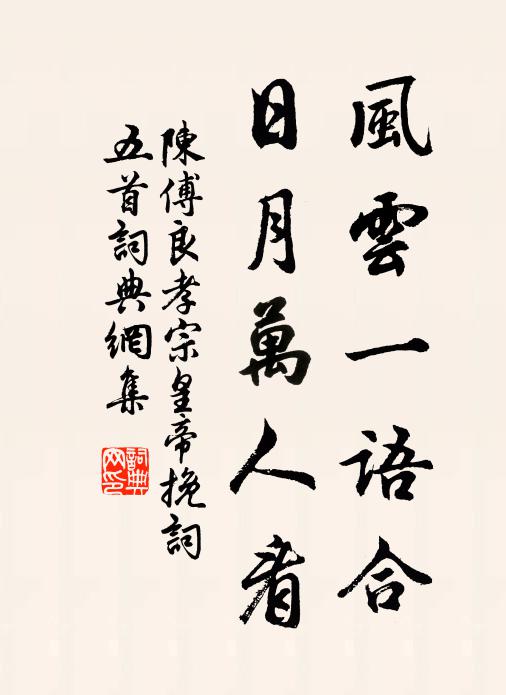 風雲一語合
日月萬人看
陳傅良孝宗皇帝挽詞
五首詞典網集
詞典網印